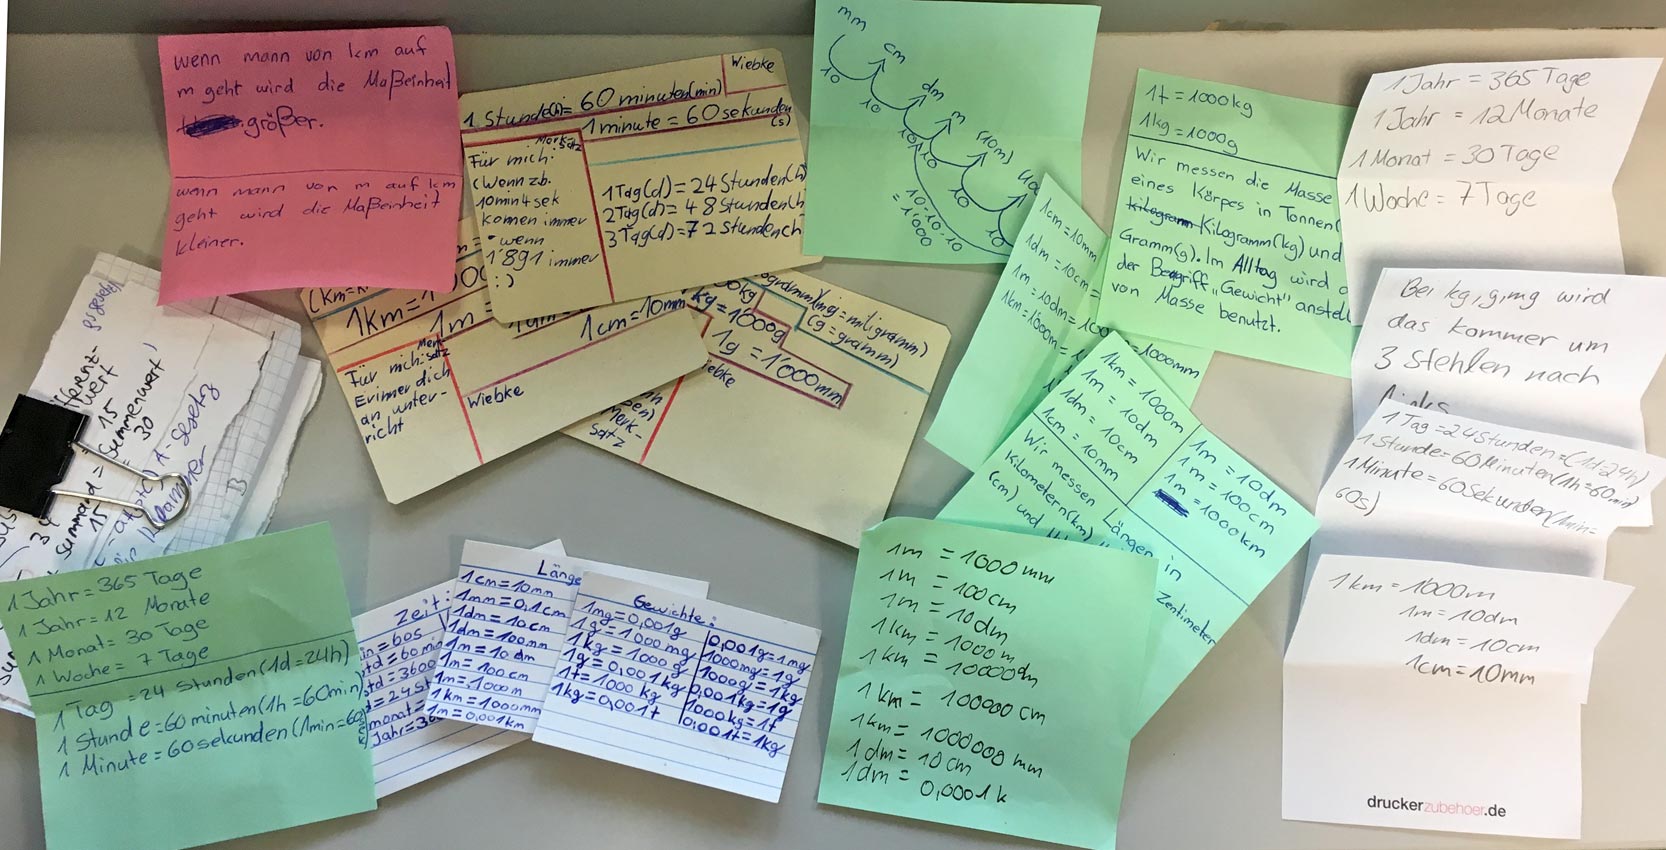 wenn mann von km auf
m geht wird die Maßeinheit
größer.
wenn mann von m auf km
geht wird die Maßeinheit
kleiner.
Wiebke
1 Stunde(h)= 60 minuten(min)
1 minute = 60 sekunden
(s)
Merk-
satz
Für mich:
(Wenn zb.
10min 4 sek
komen immer
wenn
1'891 immer
:)
1 Tag(d)= 24 Stunden(h)
2Tag(d)= 48 Stunden(h
3Tag(d)=72 Stunden(h
1km=
1m =
1cm=10mm
Merk-
satz
Für mich:
Erinner dich
an unter-
richt
Wiebke
kg = 1000g
1g = 1'000mm
(mg=miligramm)
(g=gramm)
Merk-
satz
mm
cm
dm
m
(10m)
10
10
10
10
10
10
10·10·10
= 1'000
1cm=10mm
1dm=10cm=
1m = 10dm=100
1km=1000m=
=1000mm
1km = 1000m
1m = 10dm
1dm = 10cm
1cm = 10mm
1m = 10dm
1m = 100cm
1m = 1000km
Wir messen Längen in
Kilometern(km)
Zentimeter
(cm) und
1t = 1000kg
1kg = 1000g
Wir messen die Masse
eines Körpes in Tonnen(
Kilogramm(kg) und
Gramm(g). Im Alltag wird
der Begriff „Gewicht" anstell
von Masse benutzt.
1 Jahr = 365 Tage
1 Jahr = 12 Monate
1 Monat = 30 Tage
1 Woche = 7 Tage
Bei kg,g,mg wird
das kommer um
3 stehlen nach
links
1 Tag =24 Stunden=(1d=24h)
1 Stunde=60 Minuten(1h=60min)
1 Minute=60 Sekunden(1min=
60s)
1 km = 1000m
1m = 10dm
1dm = 10cm
1cm = 10mm
druckerzubehoer.de
15
Summenwert
30
1 Jahr = 365 Tage
1 Jahr = 12 Monate
1 Monat = 30 Tage
1 Woche = 7 Tage
1 Tag =24 Stunden(1d=24h)
1 Stunde=60 minuten(1h=60min)
1 Minute=60sekunden(1min=60
Zeit:
in = 60s
std = 60 min
std = 3600
d = 24 St
monat =
Jahr=36
Länge
1cm = 10mm
1mm = 0,1cm
1dm = 10cm
1dm = 100mm
1m = 10dm
1m = 100cm
1m = 1000m
1km = 1000mm
1m = 0,001km
Gewichte:
1mg = 0,001g
1g = 1000 mg
1kg = 1000 g
1g = 0,001kg
1t = 1000 kg
1kg = 0,001t
0,001g = 1mg
1000mg = 1g
1000g = 1kg
0,001kg = 1g
1000kg = 1t
0,001t = 1kg
1m = 1000mm
1m = 100cm
1m = 10dm
1km = 1000m
1km = 10000dm
1km = 100000 cm
1km = 1000000 mm
1dm = 10cm
1dm =
0,0001k